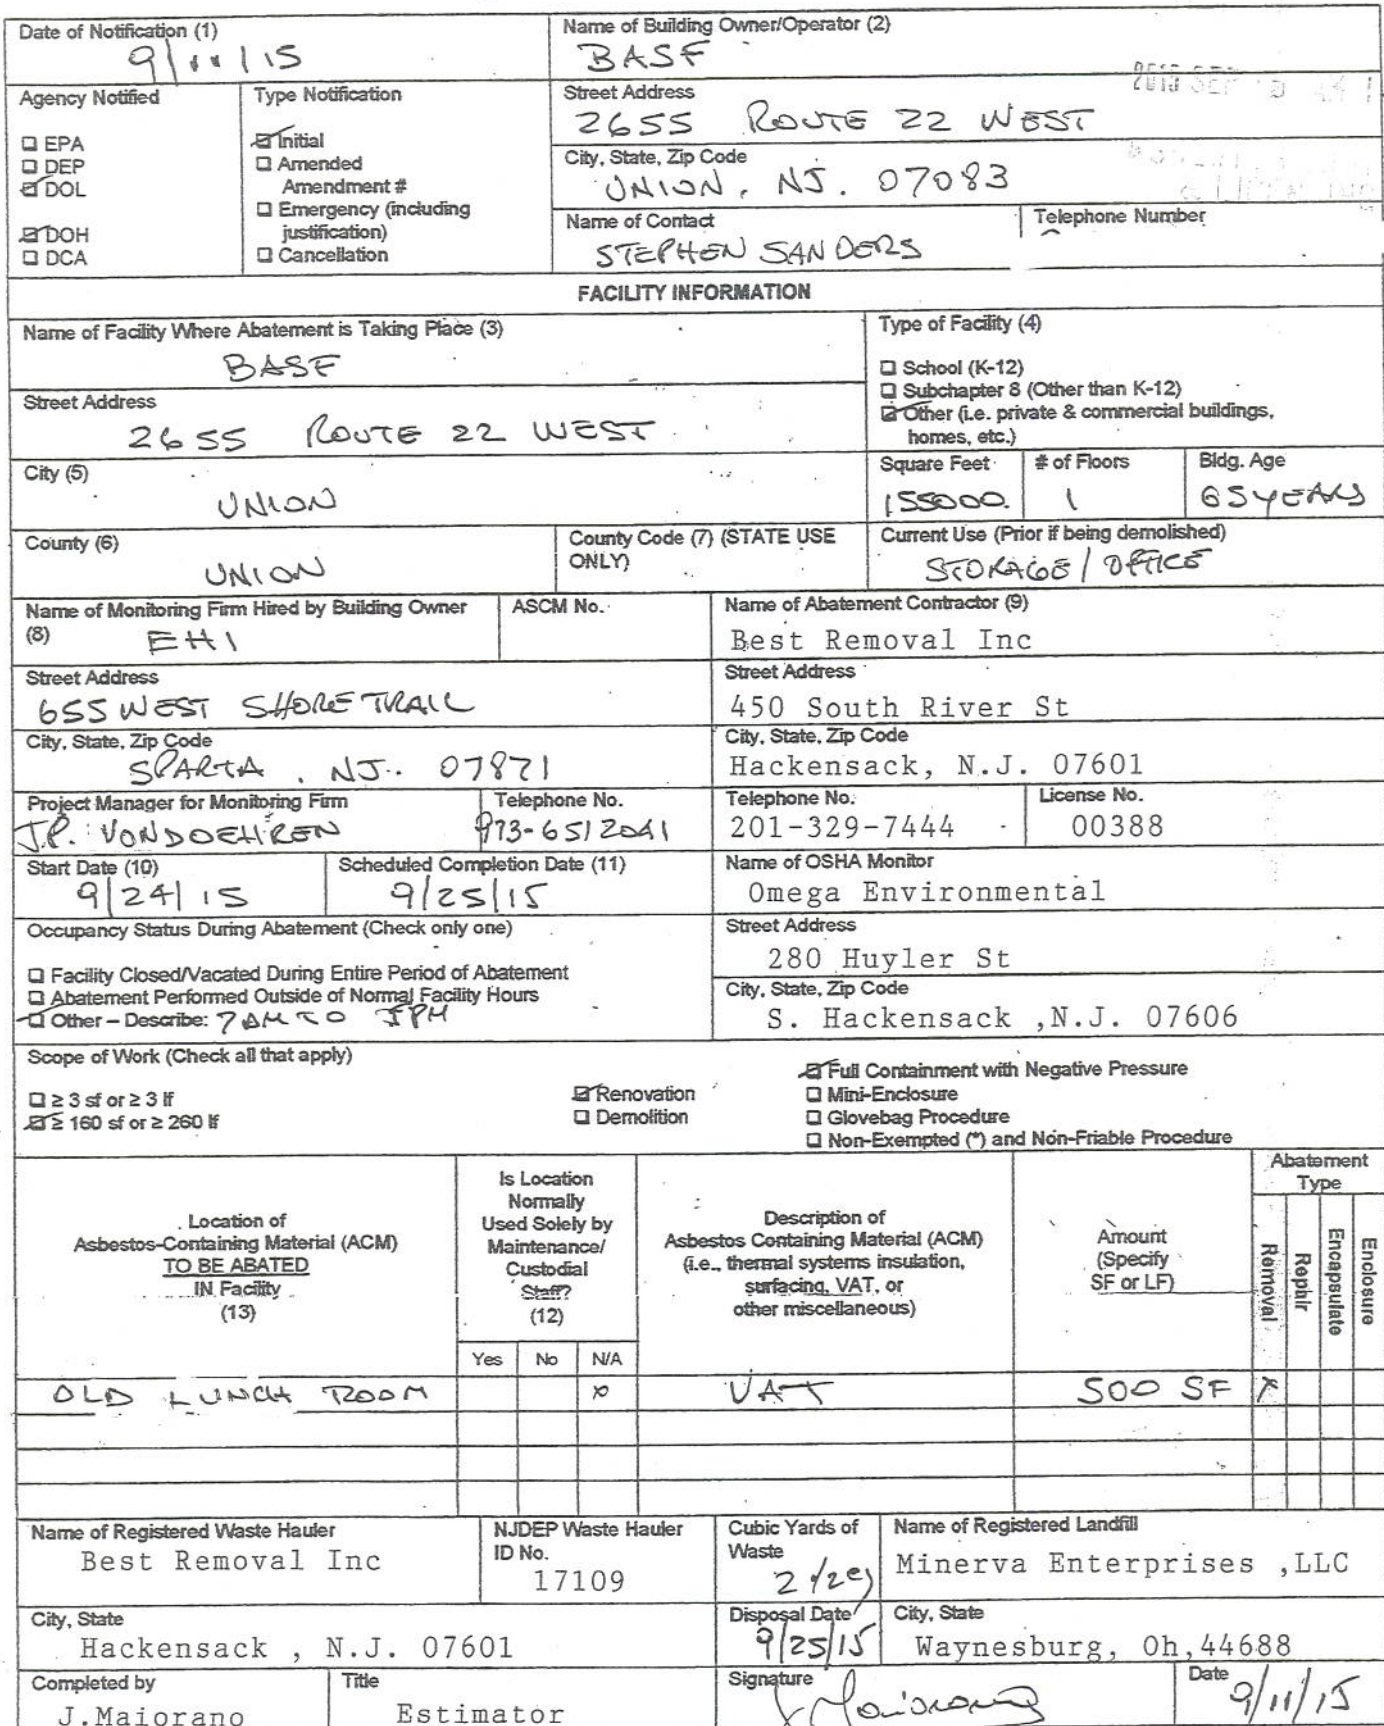 Date of Notification (1)
9/11/15
Name of Building Owner/Operator (2)
BASF
Agency Notified
☐ EPA
☐ DEP
☑ DOL
☑ DOH
☐ DCA
Type Notification
☑ Initial
☐ Amended
Amendment #
☐ Emergency (including
justification)
☐ Cancellation
Street Address
2655 ROUTE 22 WEST
City, State, Zip Code
UNION, NJ. 07083
Name of Contact
STEPHEN SANDERS
Telephone Number
FACILITY INFORMATION
Name of Facility Where Abatement is Taking Place (3)
BASF
Type of Facility (4)
☐ School (K-12)
☐ Subchapter 8 (Other than K-12)
☑ Other (i.e. private & commercial buildings,
homes, etc.)
Street Address
2655 ROUTE 22 WEST
City (5)
UNION
Square Feet
155000.
# of Floors
1
Bldg. Age
65 YEARS
County (6)
UNION
County Code (7) (STATE USE
ONLY)
Current Use (Prior if being demolished)
STORAGE / OFFICE
Name of Monitoring Firm Hired by Building Owner
(8)
EHI
ASCM No.
Name of Abatement Contractor (9)
Best Removal Inc
Street Address
655 WEST SHORE TRAIL
Street Address
450 South River St
City, State, Zip Code
SPARTA, NJ. 07871
City, State, Zip Code
Hackensack, N.J. 07601
Project Manager for Monitoring Firm
J.P. VONDOEHREN
Telephone No.
973-6512041
Telephone No.
201-329-7444
License No.
00388
Start Date (10)
9/24/15
Scheduled Completion Date (11)
9/25/15
Name of OSHA Monitor
Omega Environmental
Occupancy Status During Abatement (Check only one)
☐ Facility Closed/Vacated During Entire Period of Abatement
☐ Abatement Performed Outside of Normal Facility Hours
☑ Other – Describe: 7 AM TO PM
Street Address
280 Huyler St
City, State, Zip Code
S. Hackensack ,N.J. 07606
Scope of Work (Check all that apply)
☐ ≥ 3 sf or ≥ 3 lf
☑ ≥ 160 sf or ≥ 260 lf
☑ Renovation
☐ Demolition
☑ Full Containment with Negative Pressure
☐ Mini-Enclosure
☐ Glovebag Procedure
☐ Non-Exempted (*) and Non-Friable Procedure
Location of
Asbestos-Containing Material (ACM)
TO BE ABATED
IN Facility
(13)
Is Location
Normally
Used Solely by
Maintenance/
Custodial
Staff?
(12)
Yes No N/A
Description of
Asbestos Containing Material (ACM)
(i.e., thermal systems insulation,
surfacing, VAT, or
other miscellaneous)
Amount
(Specify
SF or LF)
Abatement
Type
Removal
Repair
Encapsulate
Enclosure
OLD LUNCH ROOM X VAT 500 SF X
Name of Registered Waste Hauler
Best Removal Inc
NJDEP Waste Hauler
ID No.
17109
Cubic Yards of
Waste
2
Name of Registered Landfill
Minerva Enterprises ,LLC
City, State
Hackensack , N.J. 07601
Disposal Date
9/25/15
City, State
Waynesburg, Oh,44688
Completed by
J.Maiorano
Title
Estimator
Signature
Date
9/11/15